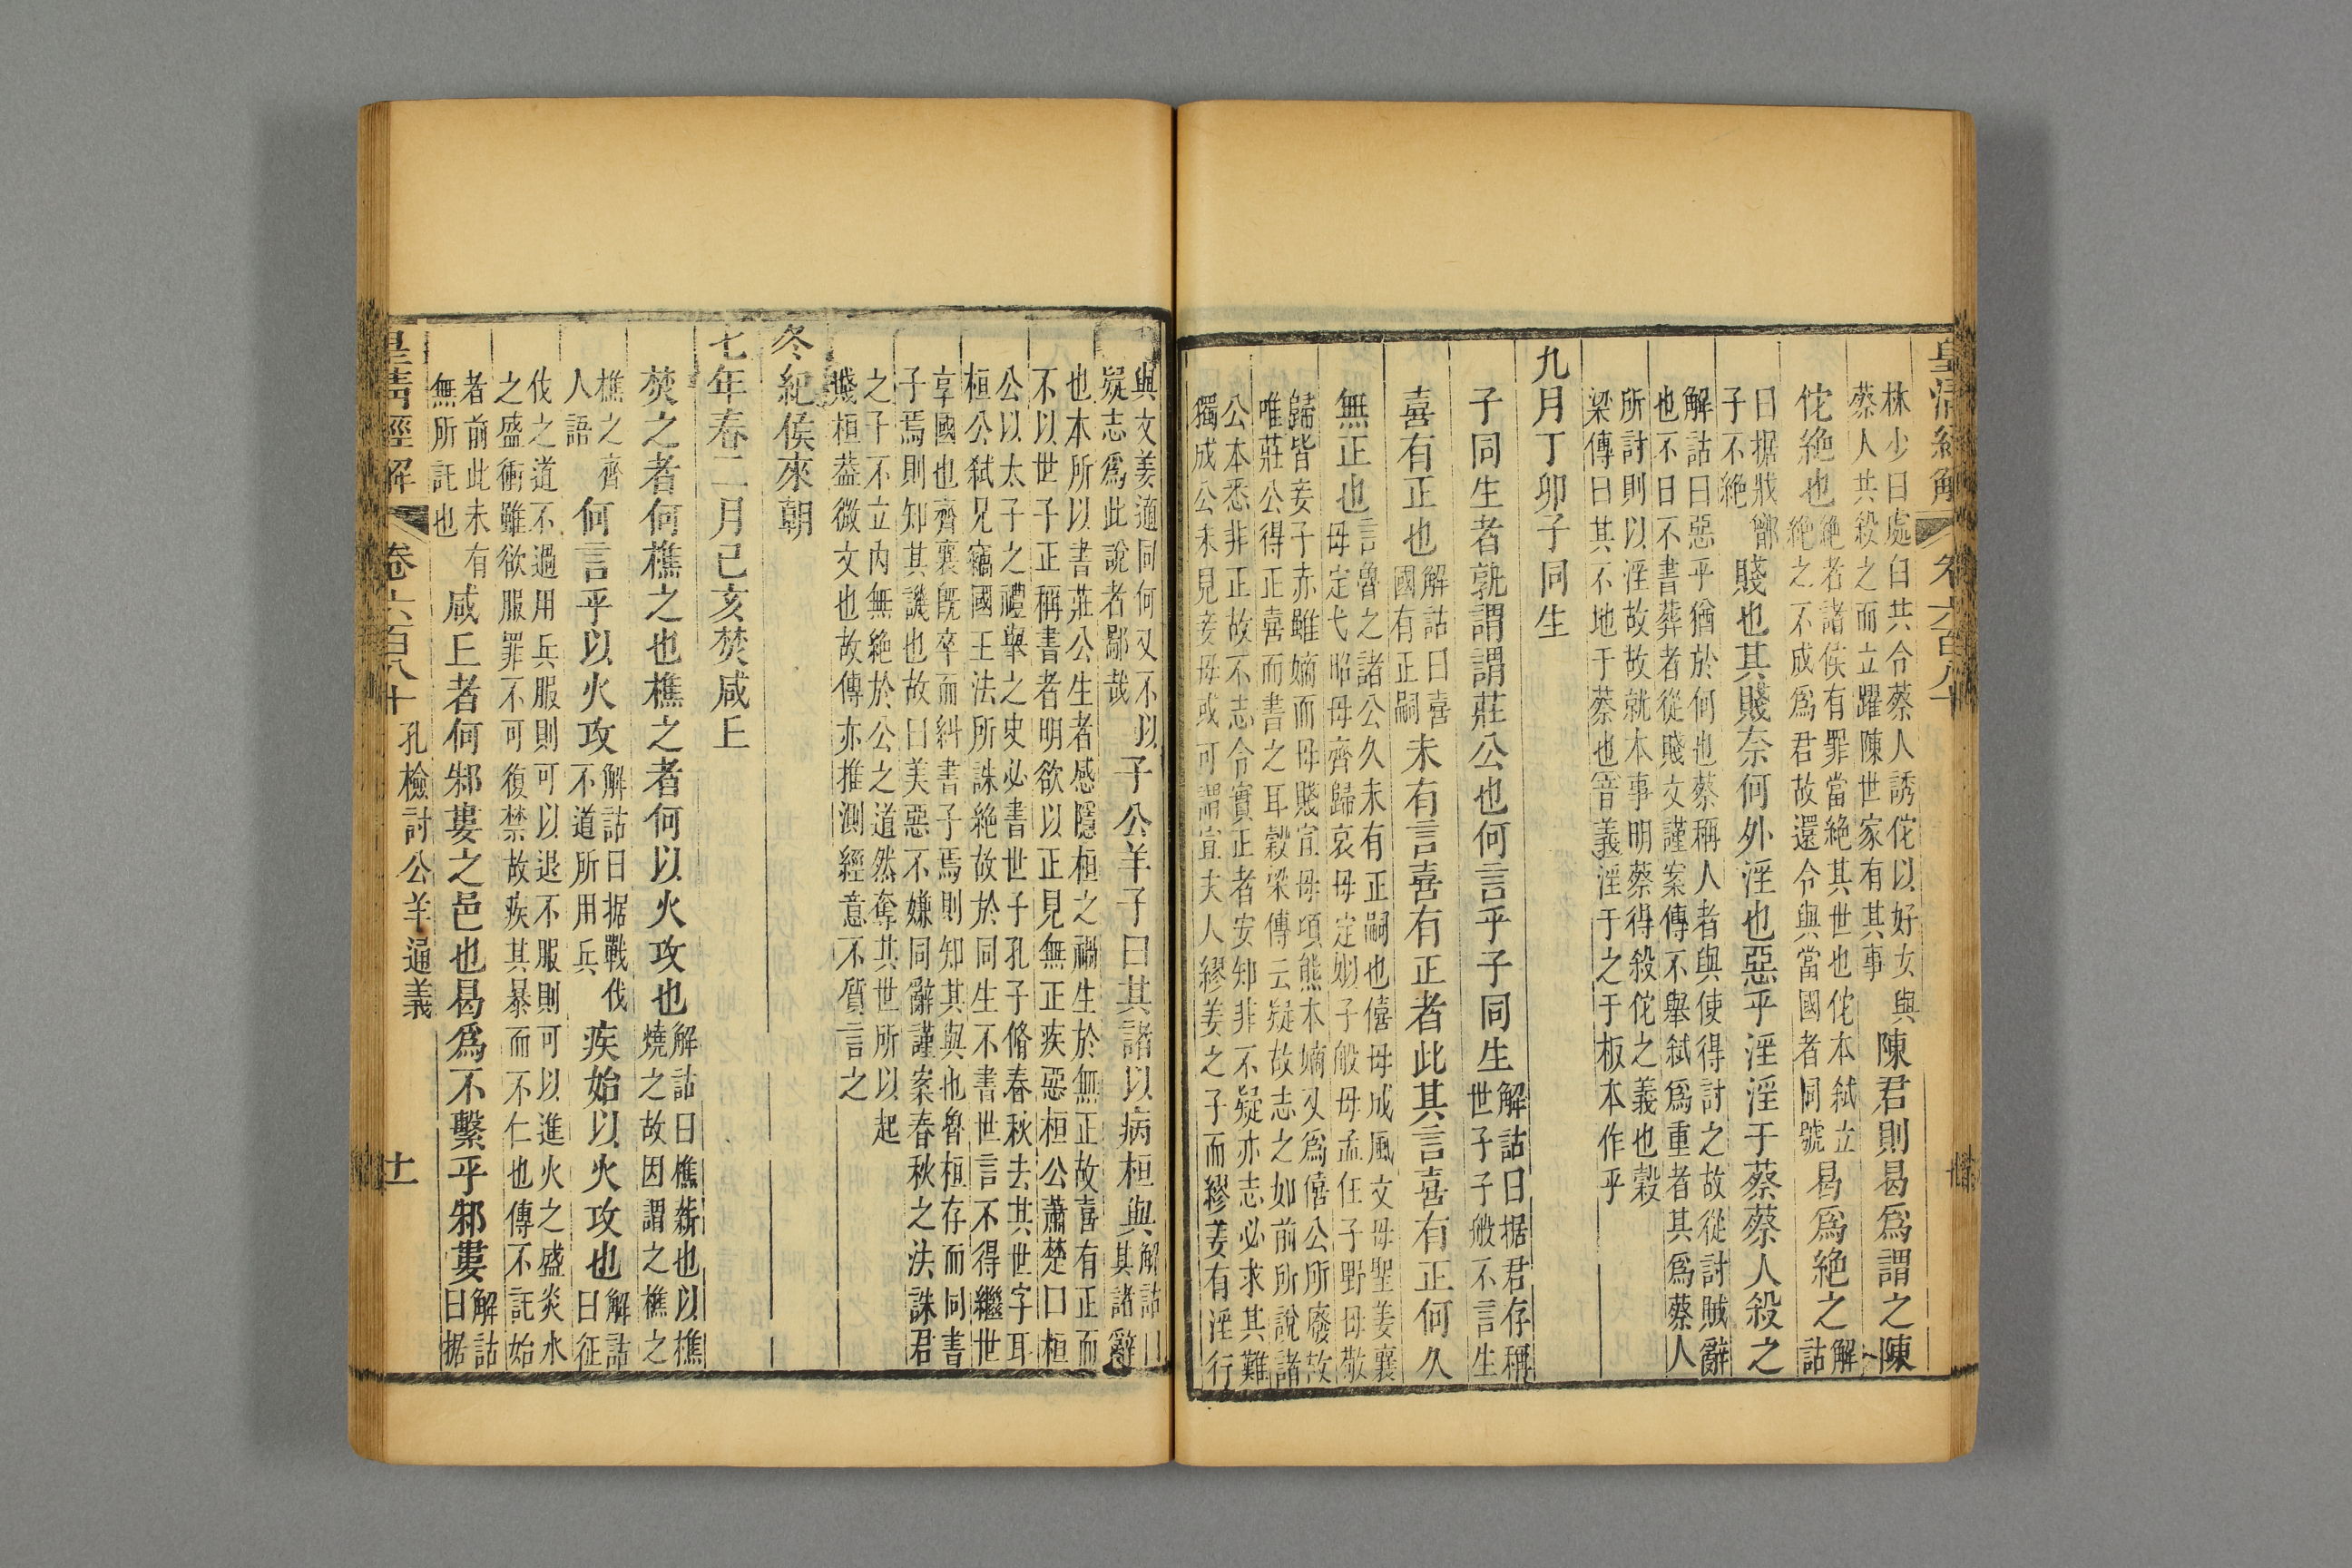 皇清經解 卷六百八十
林少曰處臼共令蔡人誘佗以好女與
蔡人共殺之而立躍陳世家有其事
陳君則曷爲謂之陳
佗絶也
絶者諸侯有罪當絶其世也佗本弑立
絶之不成爲君故還令與當國者同號
曷爲絶之
解
詁
曰据戕鄫
子不絶
賤也其賤奈何外淫也惡乎淫淫于蔡蔡人殺之
解詁曰惡乎猶於何也蔡稱人者與使得討之故從討賊辭
也不日不書葬者從賤文謹案傳不舉弑爲重者其爲蔡人
所討則以淫故故就本事明蔡得殺佗之義也穀
梁傳曰其不地于蔡也音義淫于之于板本作乎
九月丁卯子同生
子同生者孰謂謂莊公也何言乎子同生
解詁曰据君存稱
世子子般不言生
喜有正也
解詁曰喜
國有正嗣
未有言喜有正者此其言喜有正何久
無正也
言魯之諸公久未有正嗣也僖母成風文母聖姜襄
母定弋昭母齊歸哀母定姒子般母孟任子野母敬
歸皆妾子赤雖嫡而母賤宣母頃熊本嫡又爲僖公所廢故
唯莊公得正喜而書之耳穀梁傳云疑故志之如前所說諸
公本悉非正故不志令實正者安知非不疑亦志必求其難
獨成公未見妾母或可謂宜夫人繆姜之子而繆姜有淫行
與文姜適同何又不以
疑志爲此說者鄙哉
子公羊子曰其諸以病桓與
解詁曰
其諸辭
也本所以書莊公生者感隱桓之禍生於無正故喜有正而
不以世子正稱書者明欲以正見無正疾惡桓公蕭楚曰桓
公以太子之禮舉之史必書世子孔子脩春秋去其世字耳
桓公弑兄竊國王法所誅絶故於同生不書世言不得繼世
享國也齊襄既卒而糾書子焉則知其與也魯桓存而同書
子焉則知其譏也故曰美惡不嫌同辭謹案春秋之法誅君
之子不立內無絶於公之道然奪其世所以起
賤桓葢微文也故傳亦推測經意不質言之
冬紀侯來朝
七年春二月己亥焚咸丘
焚之者何樵之也樵之者何以火攻也
解詁曰樵薪也以樵
燒之故因謂之樵之
樵之齊
人語
何言乎以火攻
解詁曰据戰伐
不道所用兵
疾始以火攻也
解詁
曰征
伐之道不過用兵服則可以退不服則可以進火之盛炎水
之盛衝雖欲服罪不可復禁故疾其暴而不仁也傳不託始
者前此未有
無所託也
咸丘者何邾婁之邑也曷爲不繫乎邾婁
解詁
曰据
皇清經解 卷六百八十 孔檢討公羊通義 十一